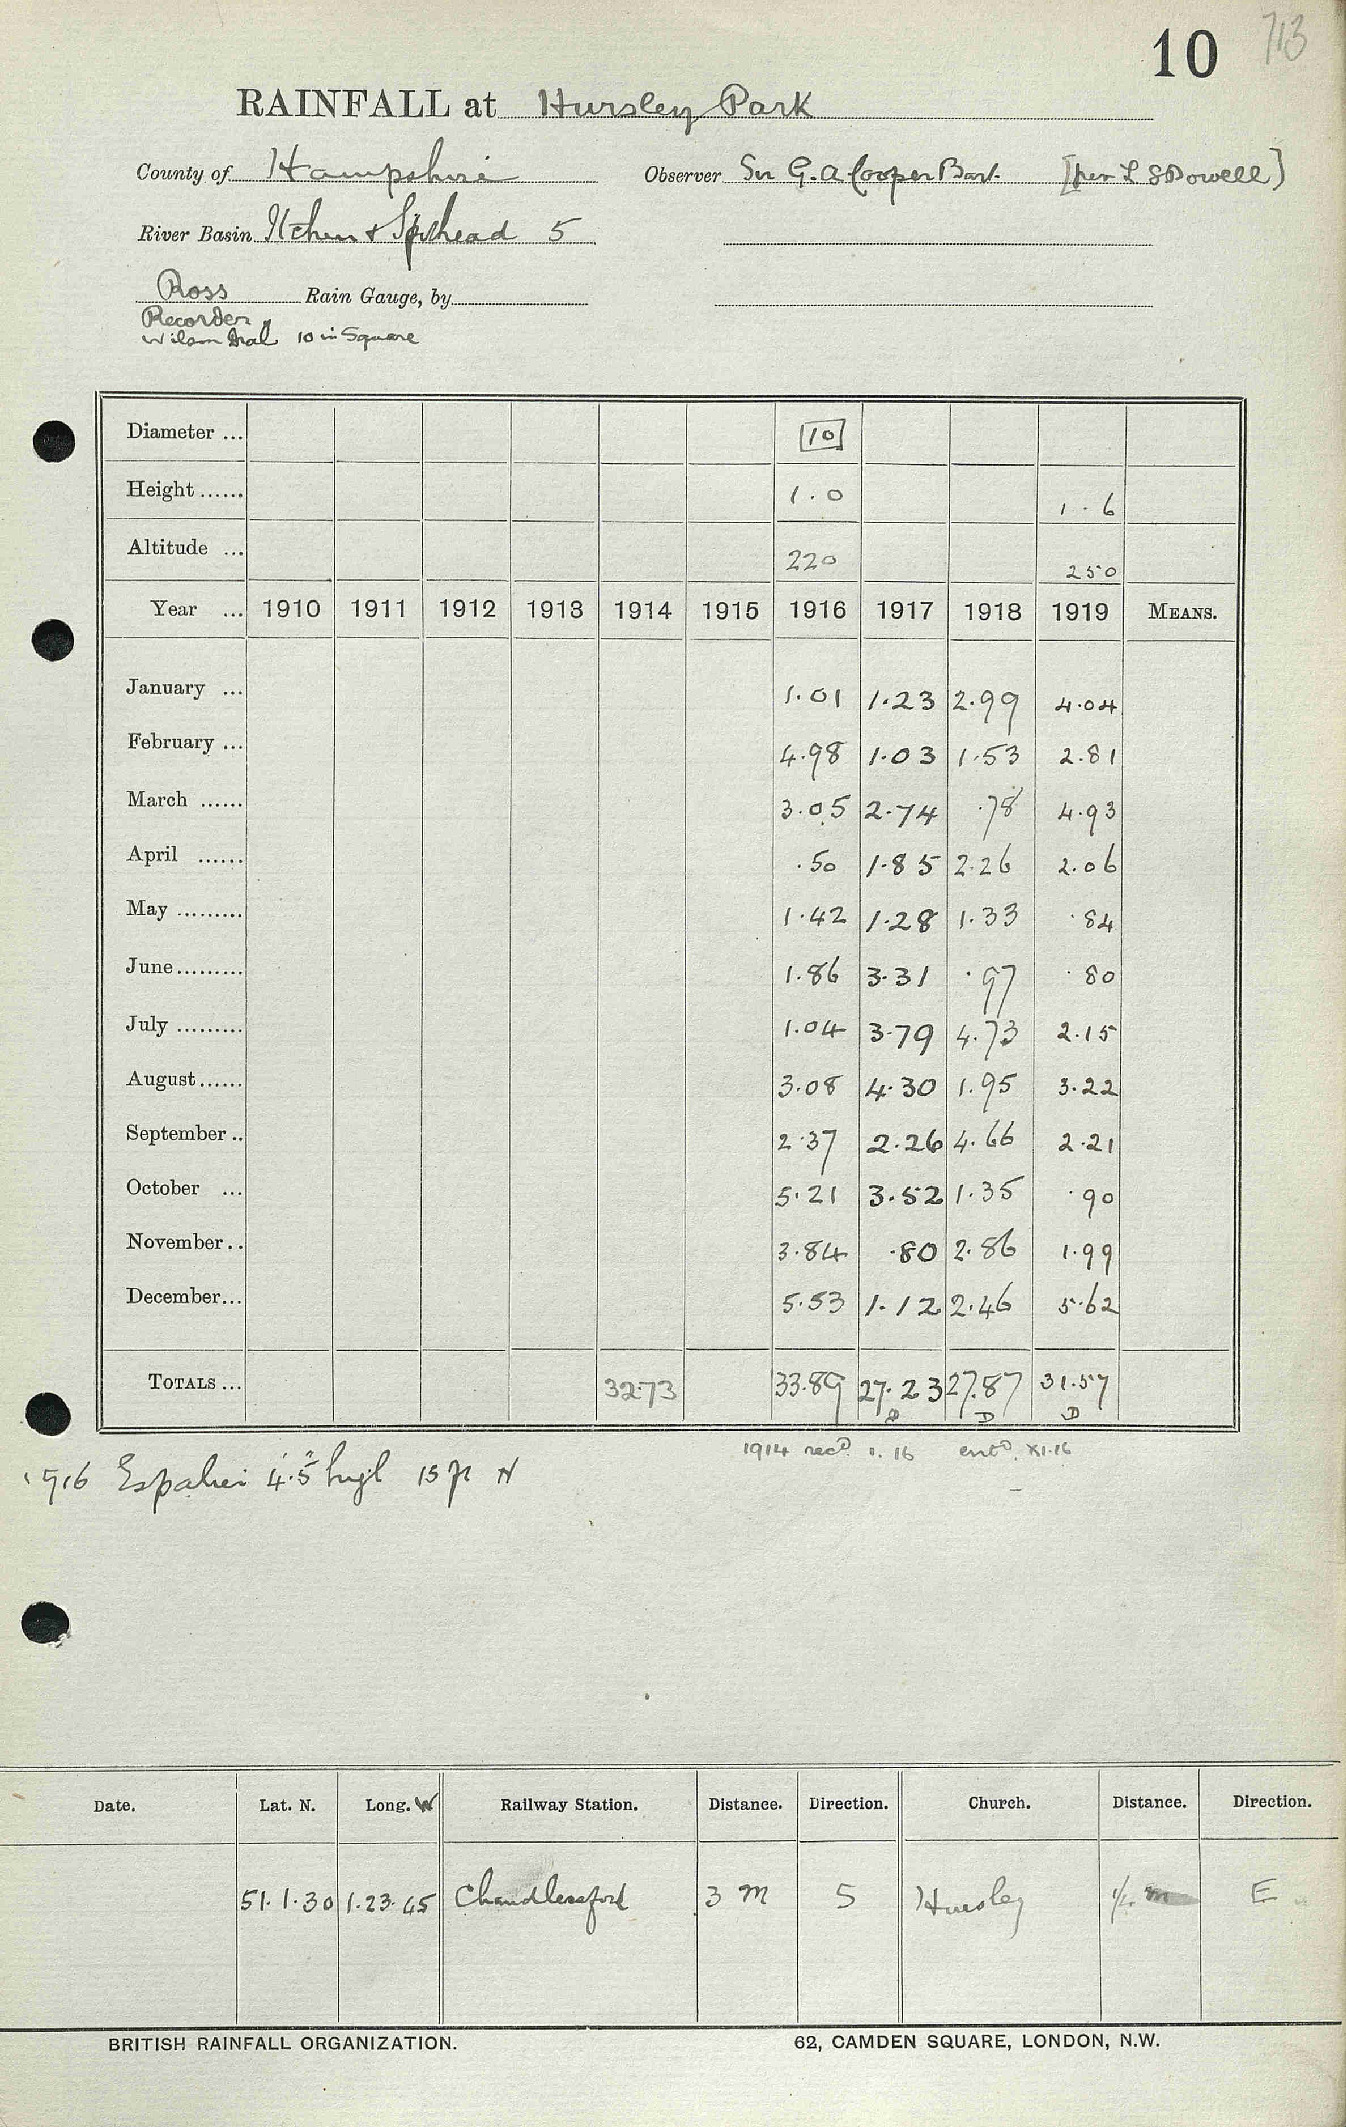 10 713
RAINFALL at Hursley Park
County of Hampshire Observer Sir G. A Cooper Bart. [per L S Powell]
River Basin Itchen & Spithead 5
Ross Rain Gauge, by
Recorder
Wilson Dial 10 in Square
Diameter ... 10
Height ...... 1.0 1.6
Altitude ... 220 250
Year ... 1910 1911 1912 1913 1914 1915 1916 1917 1918 1919 MEANS.
January ... 1.01 1.23 2.99 4.04
February ... 4.98 1.03 1.53 2.81
March ...... 3.05 2.74 .78 4.93
April ...... .50 1.85 2.26 2.06
May ......... 1.42 1.28 1.33 .84
June ......... 1.86 3.31 .97 .80
July ......... 1.04 3.79 4.73 2.15
August ...... 3.08 4.30 1.95 3.22
September .. 2.37 2.26 4.66 2.21
October ... 5.21 3.52 1.35 .90
November .. 3.84 .80 2.86 1.99
December ... 5.53 1.12 2.46 5.62
TOTALS ... 32.73 33.89 27.23 27.87 31.57
D D D
1914 recd 1.16 entd XI.16
1916 Espalier 4'.5" high 15 ft N
Date. Lat. N. Long. W Railway Station. Distance. Direction. Church. Distance. Direction.
51.1.30 1.23.45 Chandlersford 3 m S Hursley 1/4 m E
BRITISH RAINFALL ORGANIZATION. 62, CAMDEN SQUARE, LONDON, N.W.